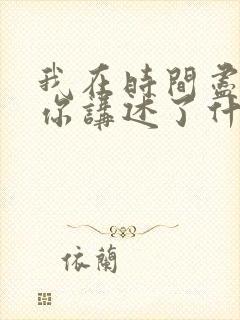 我在時間盡
你講述了什
依蘭